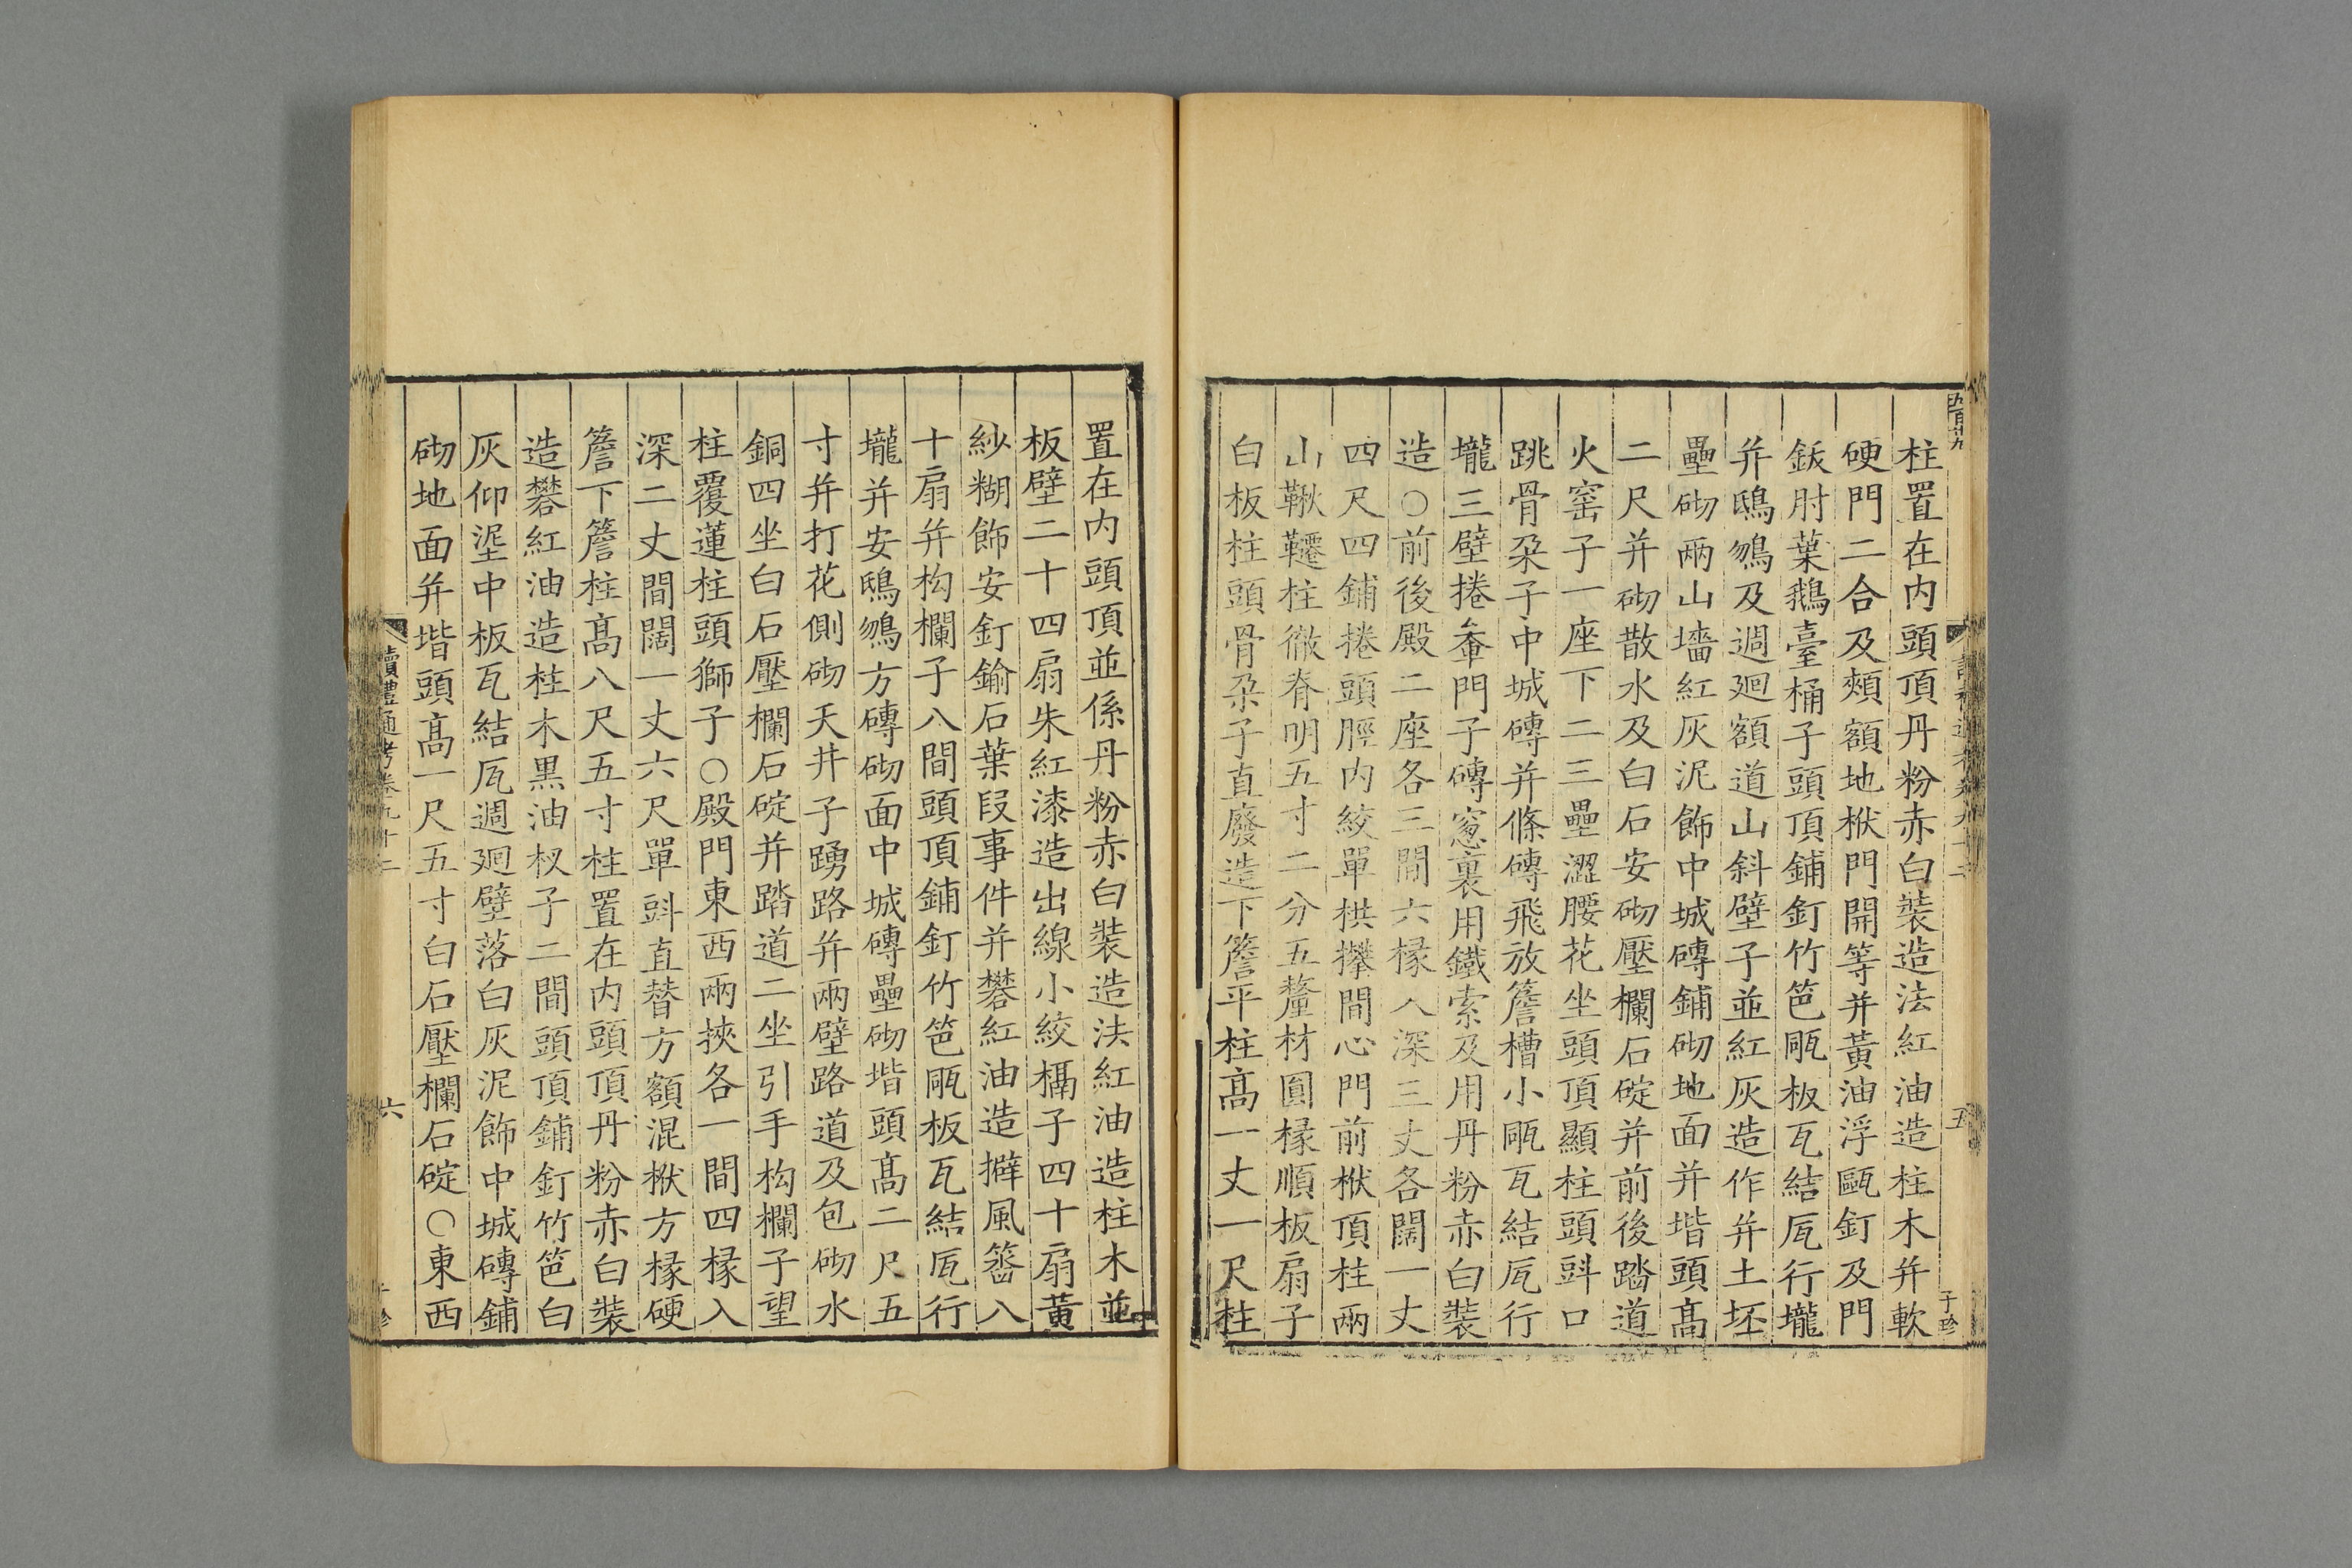 柱置在内頭頂丹粉赤白裝造法紅油造柱木并軟
硬門二合及頰額地栿門開等并黃油浮甌釘及門
鈸肘葉鵝臺桶子頭頂鋪釘竹笆㼧板瓦結瓦行壠
并鴟鴪及週廻額道山斜壁子並紅灰造作并土坯
壘砌兩山墻紅灰泥飾中城磚鋪砌地面并堦頭高
二尺并砌散水及白石安砌壓欄石碇并前後踏道
火窑子一座下二三壘澀腰花坐頭頂顯柱頭㪷口
跳骨朶子中城磚并條磚飛放簷槽小㼧瓦結瓦行
壠三壁捲輂門子磚窻裏用鐵索及用丹粉赤白裝
造○前後殿二座各三間六椽入深三丈各闊一丈
四尺四鋪捲頭脛内絞單栱攀間心門前栿頂柱兩
山鞦韆柱徹脊明五寸二分五釐材圓椽順板扇子
白板柱頭骨朶子直廢造下簷平柱高一丈一尺柱
置在内頭頂並係丹粉赤白裝造法紅油造柱木並
板壁二十四扇朱紅漆造出線小絞槅子四十扇黃
紗糊飾安釘鍮石葉段事件并礬紅油造擗風簭八
十扇并构欄子八間頭頂鋪釘竹笆㼧板瓦結瓦行
壠并安鴟鴪方磚砌面中城磚壘砌堦頭高二尺五
寸并打花側砌天井子踴路并兩壁路道及包砌水
銅四坐白石壓欄石碇并踏道二坐引手构欄子望
柱覆蓮柱頭獅子○殿門東西兩挾各一間四椽入
深二丈間闊一丈六尺單㪷直替方額混栿方椽硬
簷下簷柱高八尺五寸柱置在内頭頂丹粉赤白裝
造礬紅油造柱木黑油杈子二間頭頂鋪釘竹笆白
灰仰埿中板瓦結瓦週廻壁落白灰泥飾中城磚鋪
砌地面并堦頭高一尺五寸白石壓欄石碇○東西
讀禮通考卷九十二
六
五
子珍